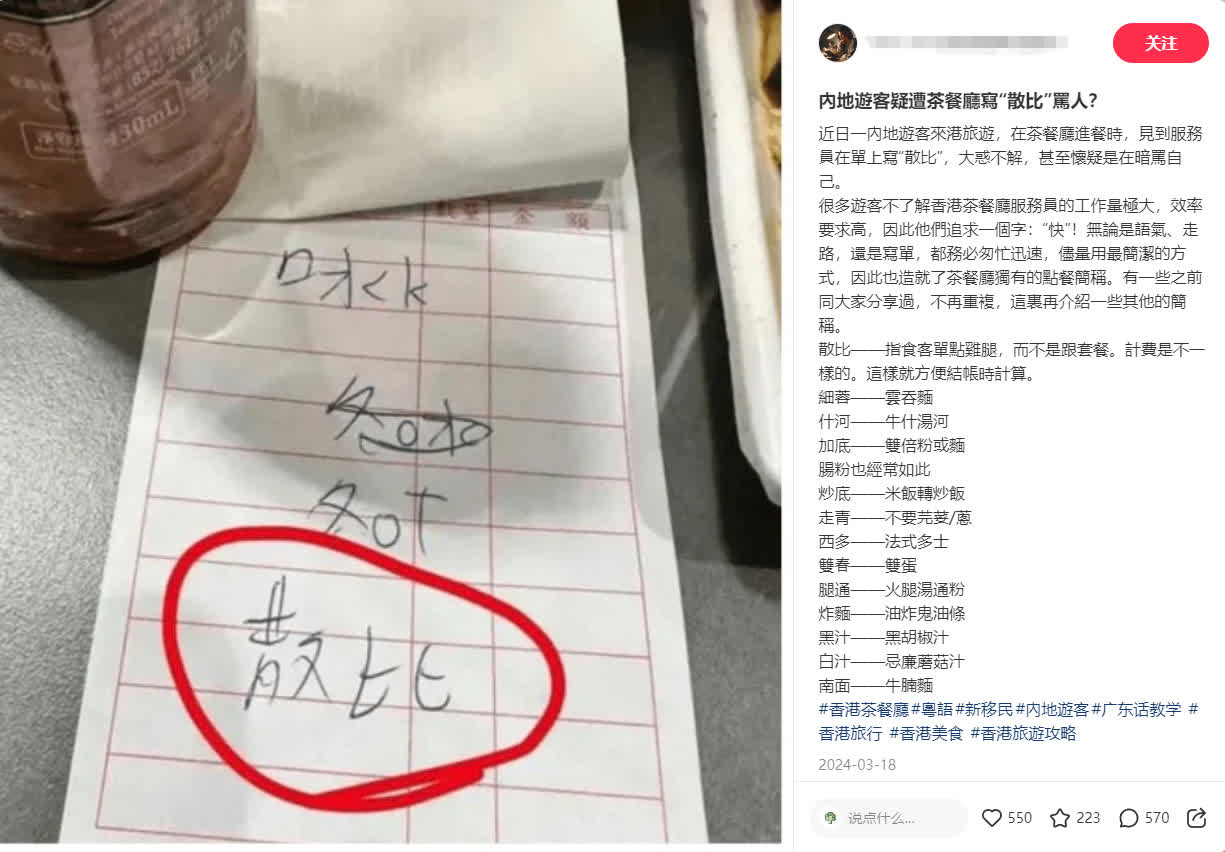 530mL
數量 金額
口水く k
冬o水
冬oT
散比
关注
内地遊客疑遭茶餐廳寫“散比”罵人？
近日一内地遊客來港旅遊，在茶餐廳進餐時，見到服務
員在單上寫“散比”，大惑不解，甚至懷疑是在暗罵自
己。
很多遊客不了解香港茶餐廳服務員的工作量極大，效率
要求高，因此他們追求一個字：“快”！無論是語氣、走
路，還是寫單，都務必匆忙迅速，儘量用最簡潔的方
式，因此也造就了茶餐廳獨有的點餐簡稱。有一些之前
同大家分享過，不再重複，這裏再介紹一些其他的簡
稱。
散比——指食客單點雞腿，而不是跟套餐。計費是不一
樣的。這樣就方便結帳時計算。
細蓉——雲吞麵
什河——牛什湯河
加底——雙倍粉或麵
腸粉也經常如此
炒底——米飯轉炒飯
走青——不要芫荽/蔥
西多——法式多士
雙春——雙蛋
腿通——火腿湯通粉
炸麵——油炸鬼油條
黑汁——黑胡椒汁
白汁——忌廉蘑菇汁
南面——牛腩麵
#香港茶餐廳#粵語#新移民#内地遊客#广东话教学 #
香港旅行 #香港美食 #香港旅遊攻略
2024-03-18
说点什么...
550 223 570